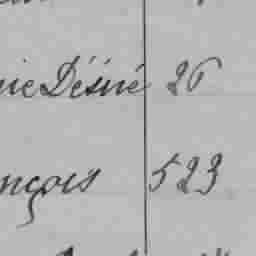 Désiré 26
nçois 523